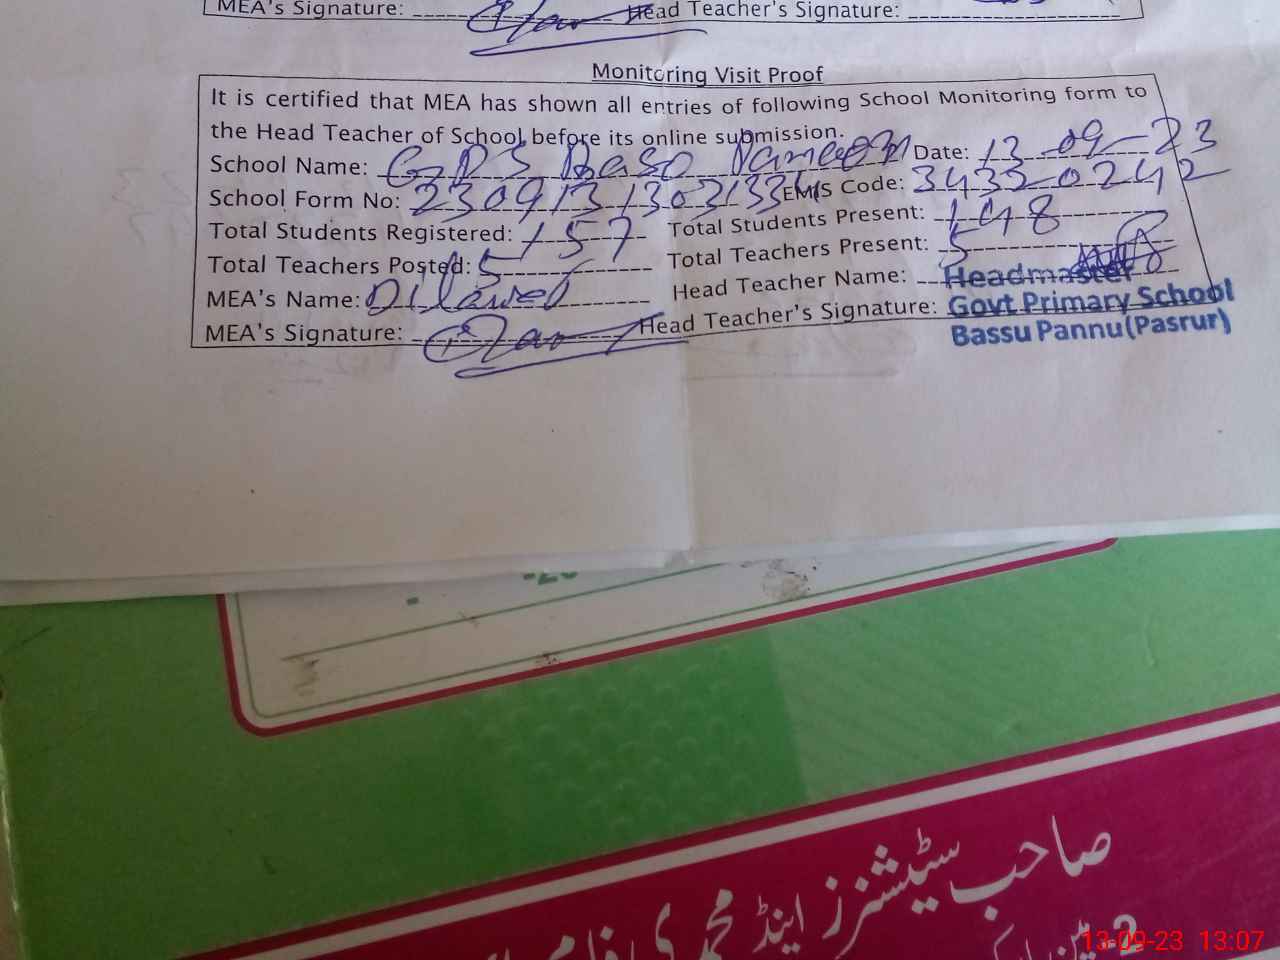 MEA's Signature: Head Teacher's Signature:
Monitoring Visit Proof
It is certified that MEA has shown all entries of following School Monitoring form to
the Head Teacher of School before its online submission.
School Name: GPS Baso Date: 13-09-23
School Form No: EMIS Code: 34320242
Total Students Registered: 157 Total Students Present: 148
Total Teachers Posted: 5 Total Teachers Present: 5
MEA's Name: Dilawer Head Teacher Name:
MEA's Signature: Head Teacher's Signature:
Headmaster
Govt Primary School
Bassu Pannu(Pasrur)
صاحب سٹیشنرز اینڈ محمدی
13-09-23 13:07